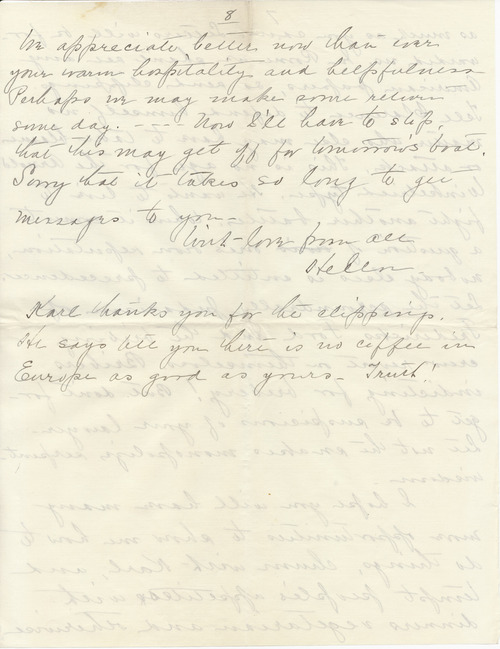 8
We appreciate better now than ever
your warm hospitality and helpfulness
Perhaps we may make some return
some day. ---- Now I'll have to stop,
that this may get off for tomorrow's boat.
Sorry that it takes so long to get
messages to you -
With love from all
Hellen
Karl thanks you for the clippings.
He says tell you there is no coffee in
Europe as good as yours - Truth!